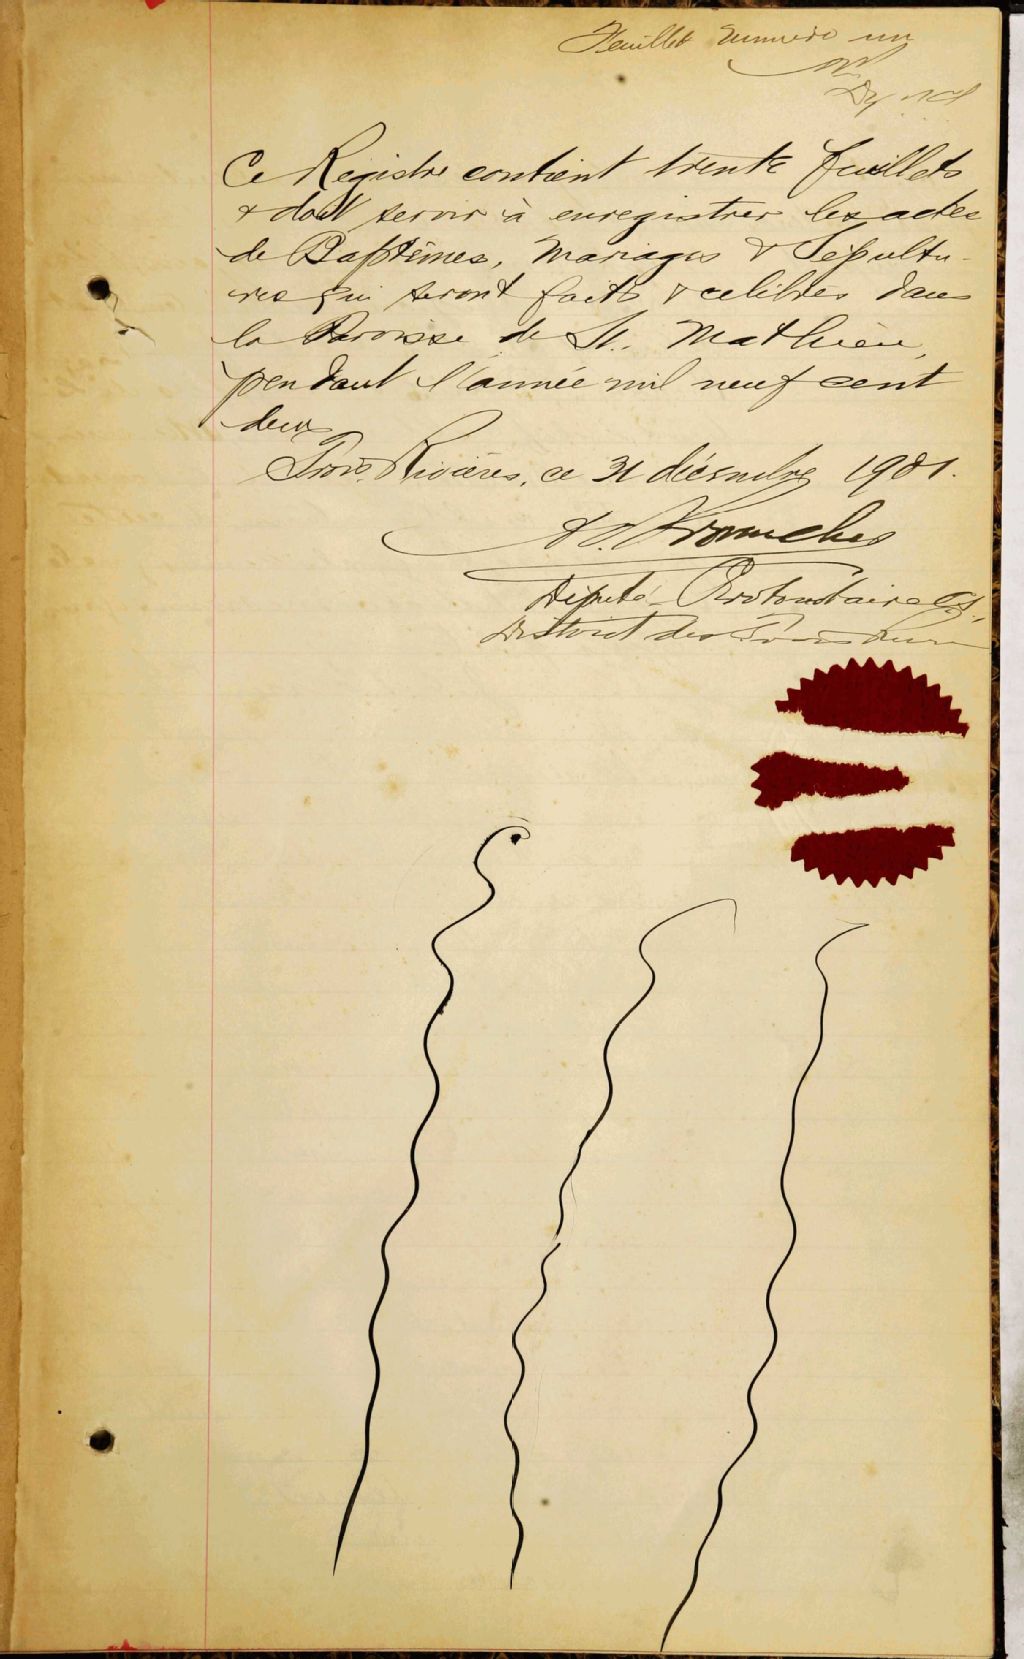 Feuillet numéro un
Dy
Ce Registre contient trente feuillets
& doit servir à enregistrer les actes
de Baptêmes, Mariages & Sépultu-
res qui seront faits & célébrés dans
la Paroisse de St. Mathieu,
pendant l'année mil neuf cent
deux
Trois Rivières, ce 31 décembre 1901.
Député Protonotaire CS.
District des Trois Rivières